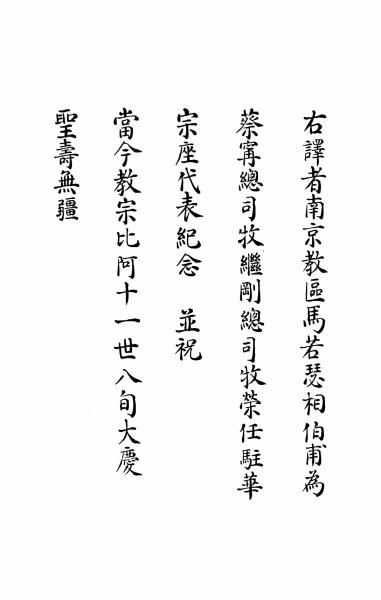 右譯者南京教區馬若瑟相伯甫為
蔡甯總司牧繼剛總司牧榮任駐華
宗座代表紀念 並祝
當今教宗比阿十一世八旬大慶
聖壽無疆